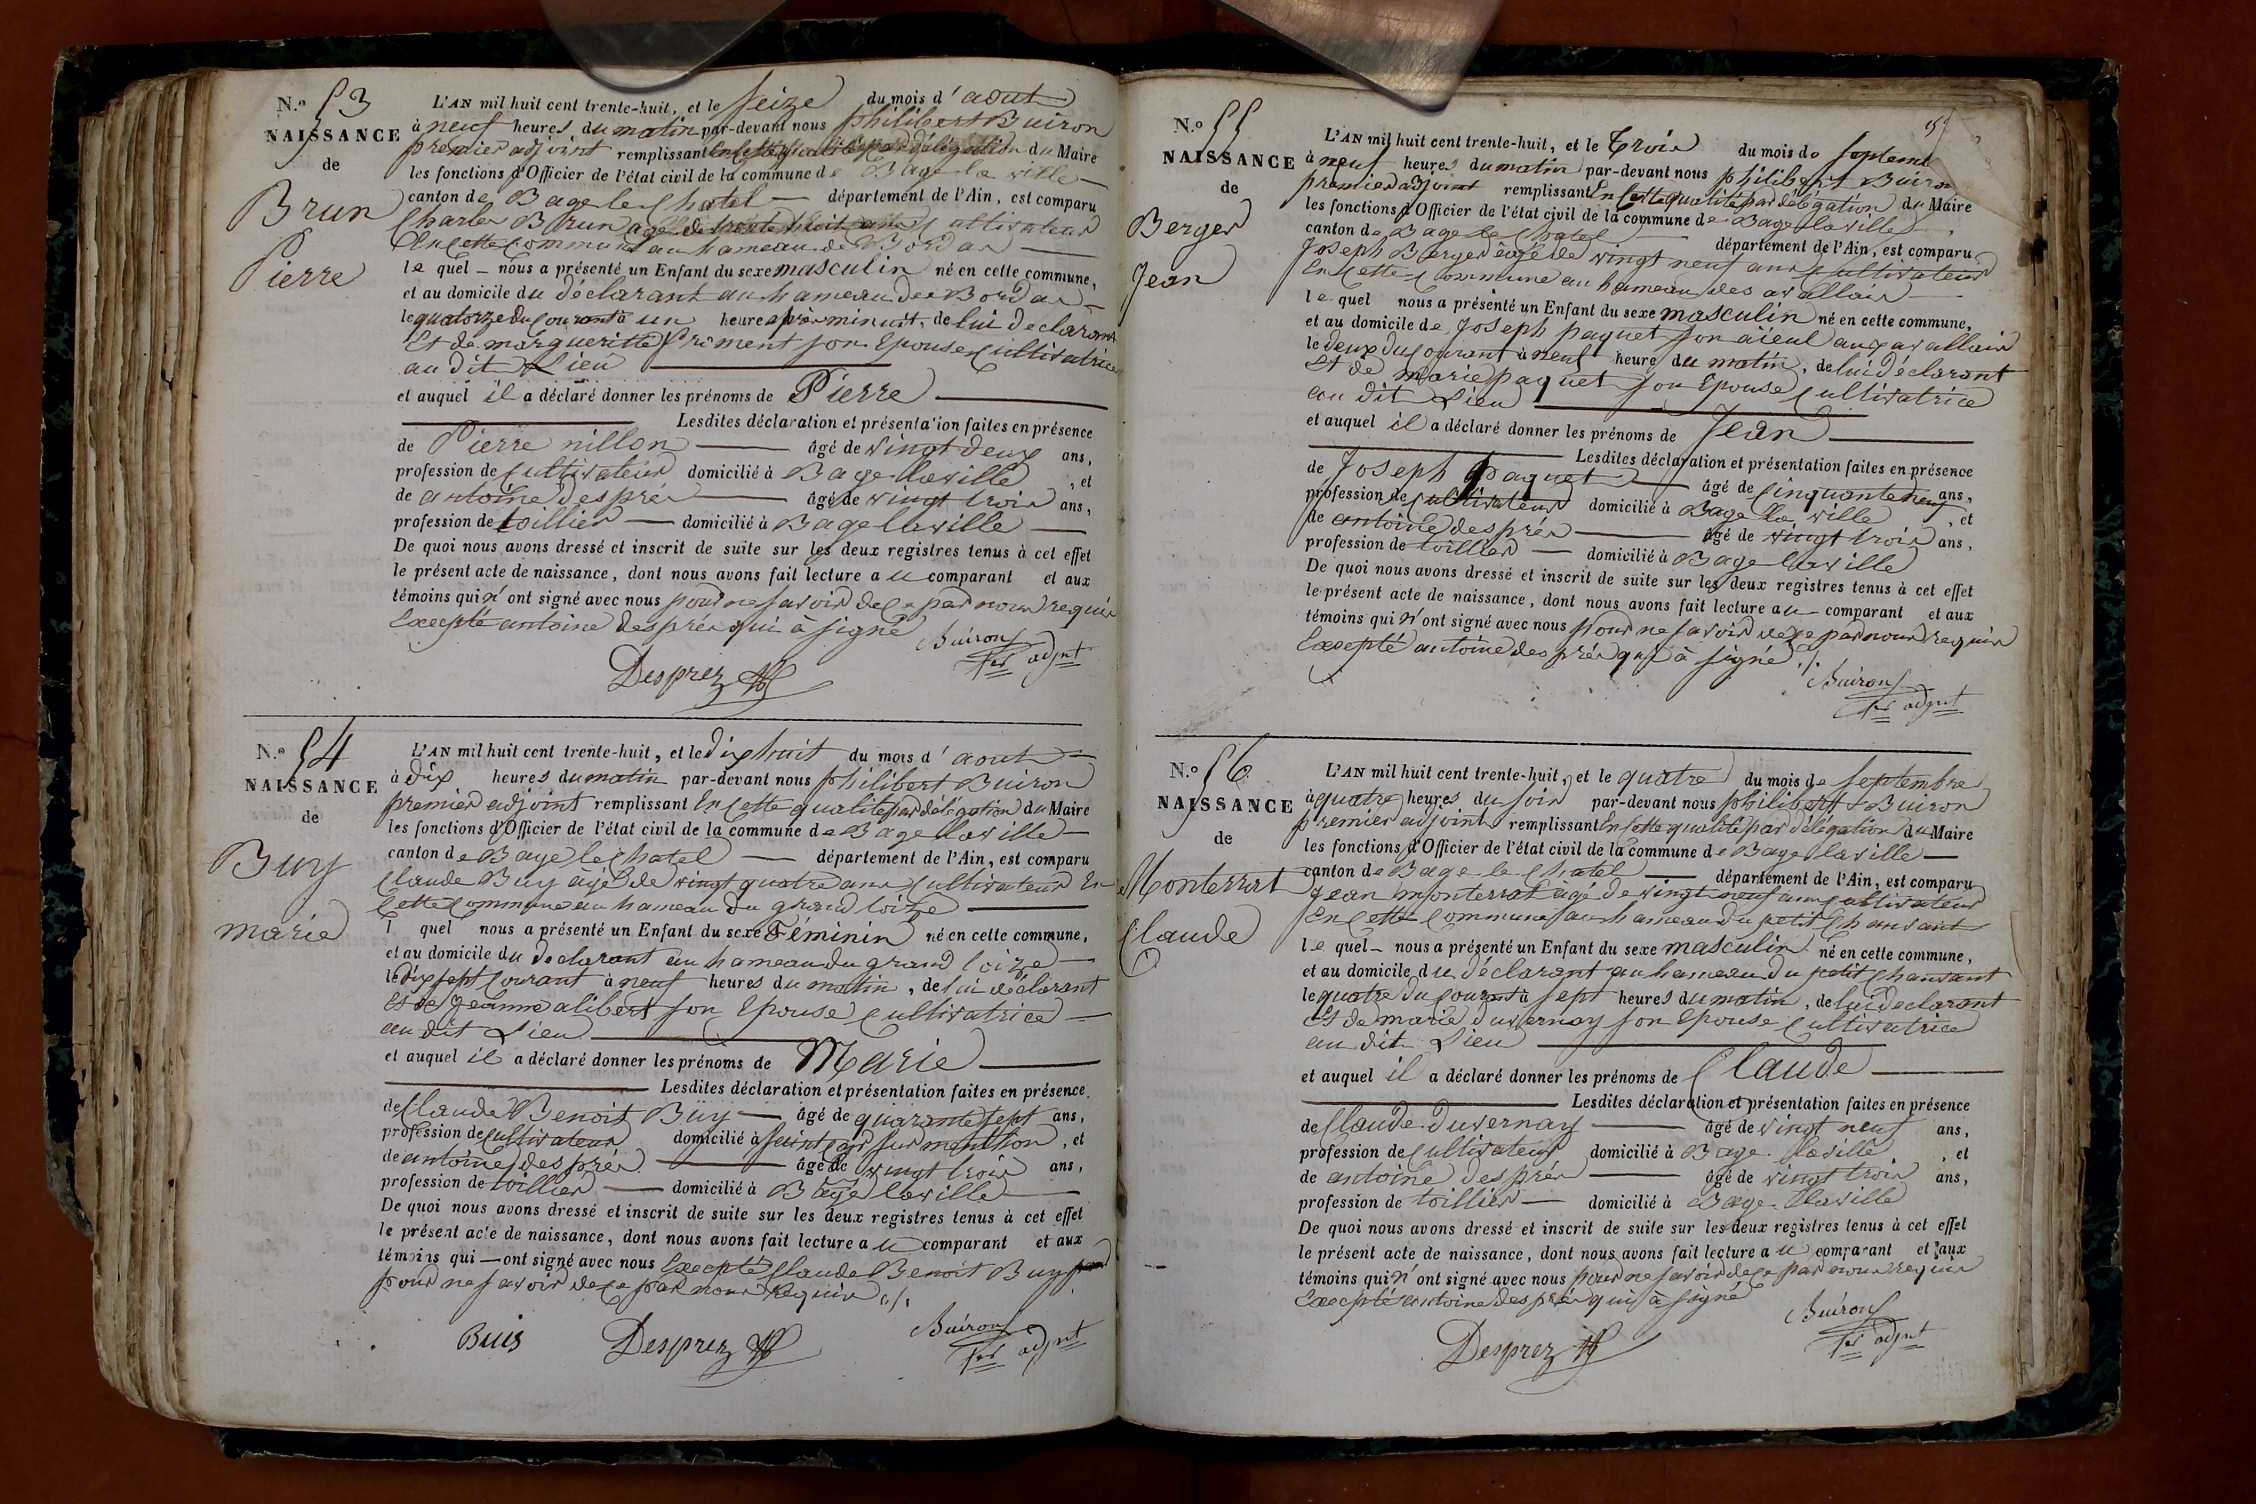 N.o 53
NAISSANCE
de
Brun
Pierre
L'AN mil huit cent trente-huit, et le seize du mois d'aout
à neuf heures du matin par-devant nous philibert Buiron
premier adjoint remplissant en cette qualité par délégation du Maire
les fonctions d'Officier de l'état civil de la commune de Bage la ville
canton de Bage le Chatel département de l'Ain, est comparu
Charles Brun agé de trente huit ans Cultivateur
En cette Commune au hameau de Bordar
le quel nous a présenté un Enfant du sexe masculin né en cette commune,
et au domicile du déclarant au hameau des Bordar
le quatorze du courant à un heure après minuit, de lui déclarant
Et de margueritte froment son Epouse Cultivatrice
au dit Lieu
et auquel il a déclaré donner les prénoms de Pierre
Lesdites déclaration et présentation faites en présence
de Pierre nillon âgé de vingt deux ans,
profession de Cultivateur domicilié à Bage la ville, et
de antoine després âgé de vingt trois ans,
profession de toillier domicilié à Bage la ville
De quoi nous avons dressé et inscrit de suite sur les deux registres tenus à cet effet
le présent acte de naissance, dont nous avons fait lecture au comparant et aux
témoins qui n'ont signé avec nous pour ne savoir de ce par nous requis
Excepté antoine després qui à signé
Desprez
Buiron
1er adjnt
N.o 54
NAISSANCE
de
Buy
marie
L'AN mil huit cent trente-huit, et le dix huit du mois d'aout
à dix heures du matin par-devant nous philibert Buiron
premier adjoint remplissant En cette qualité par délégation du Maire
les fonctions d'Officier de l'état civil de la commune de Bage la ville
canton de Bage le Chatel département de l'Ain, est comparu
Claude Buy âgé de vingt quatre ans Cultivateur En
Cette Commune au hameau du grand loize
l quel nous a présenté un Enfant du sexe Féminin né en cette commune,
et au domicile du declarant au hameau du grand loize
le dix sept Courant à neuf heures du matin, de lui déclarant
Et de Jeanne alibert son Epouse Cultivatrice
au dit Lieu
et auquel il a déclaré donner les prénoms de Marie
Lesdites déclaration et présentation faites en présence
de Claude Benoit Buy âgé de quarante sept ans,
profession de Cultivateur domicilié à Saint Cyr sur menthon, et
de antoine després âgé de vingt trois ans,
profession de toillier domicilié à Bage la ville
De quoi nous avons dressé et inscrit de suite sur les deux registres tenus à cet effet
le présent acte de naissance, dont nous avons fait lecture au comparant et aux
témoins qui ont signé avec nous Excepté Claude Benoit Buy
pour ne savoir de ce par nous Requis
Buis
Desprez
Buiron
1er adjnt
N.o 55
NAISSANCE
de
Berger
Jean
L'AN mil huit cent trente-huit, et le trois du mois de septem
à neuf heures du matin par-devant nous philibert Buiron
premier adjoint remplissant En cette qualité par délégation du Maire
les fonctions d'Officier de l'état civil de la commune de Bage la ville
canton de Bage le Chatel département de l'Ain, est comparu
Joseph Berger âgé de vingt neuf ans Cultivateur
En Cette Commune au hameau des avallais
le quel nous a présenté un Enfant du sexe masculin né en cette commune,
et au domicile de Joseph paquet son aïeul aux avallais
le deux du courant à neuf heure du matin, de lui déclarant
Et de marie paquet son Epouse Cultivatrice
au dit Lieu
et auquel il a déclaré donner les prénoms de Jean
Lesdites déclaration et présentation faites en présence
de Joseph Paquet âgé de Cinquante neuf ans,
profession de Cultivateur domicilié à Bage la ville, et
de antoine després âgé de vingt trois ans,
profession de toillier domicilié à Bage la ville
De quoi nous avons dressé et inscrit de suite sur les deux registres tenus à cet effet
le présent acte de naissance, dont nous avons fait lecture au comparant et aux
témoins qui n'ont signé avec nous pour ne savoir de ce par nous requis
Excepté antoine després qui à signé
Buiron
1er adjnt
N.o 56
NAISSANCE
de
Monterrat
Claude
L'AN mil huit cent trente-huit, et le quatre du mois de septembre
à quatre heures du soir par-devant nous philibert Buiron
premier adjoint remplissant En cette qualité par délégation du Maire
les fonctions d'Officier de l'état civil de la commune de Bage la ville
canton de Bage le Chatel département de l'Ain, est comparu
Jean monterrat agé de vingt neuf ans cultivateur
En Cette Commune au hameau du petit Chansant
le quel nous a présenté un Enfant du sexe masculin né en cette commune,
et au domicile du déclarant au hameau du petit Chansant
le quatre du courant à sept heures du matin, de lui declarant
Et de marie duvernay son Epouse Cultivatrice
au dit Lieu
et auquel il a déclaré donner les prénoms de Claude
Lesdites déclaration et présentation faites en présence
de Claude duvernay âgé de vingt neuf ans,
profession de Cultivateur domicilié à Bage la ville, et
de antoine després âgé de vingt trois ans,
profession de toillier domicilié à Bage la ville
De quoi nous avons dressé et inscrit de suite sur les deux registres tenus à cet effet
le présent acte de naissance, dont nous avons fait lecture au comparant et aux
témoins qui n'ont signé avec nous pour ne savoir de ce par nous requis
Excepté antoine després qui à signé
Desprez
Buiron
1er adjnt